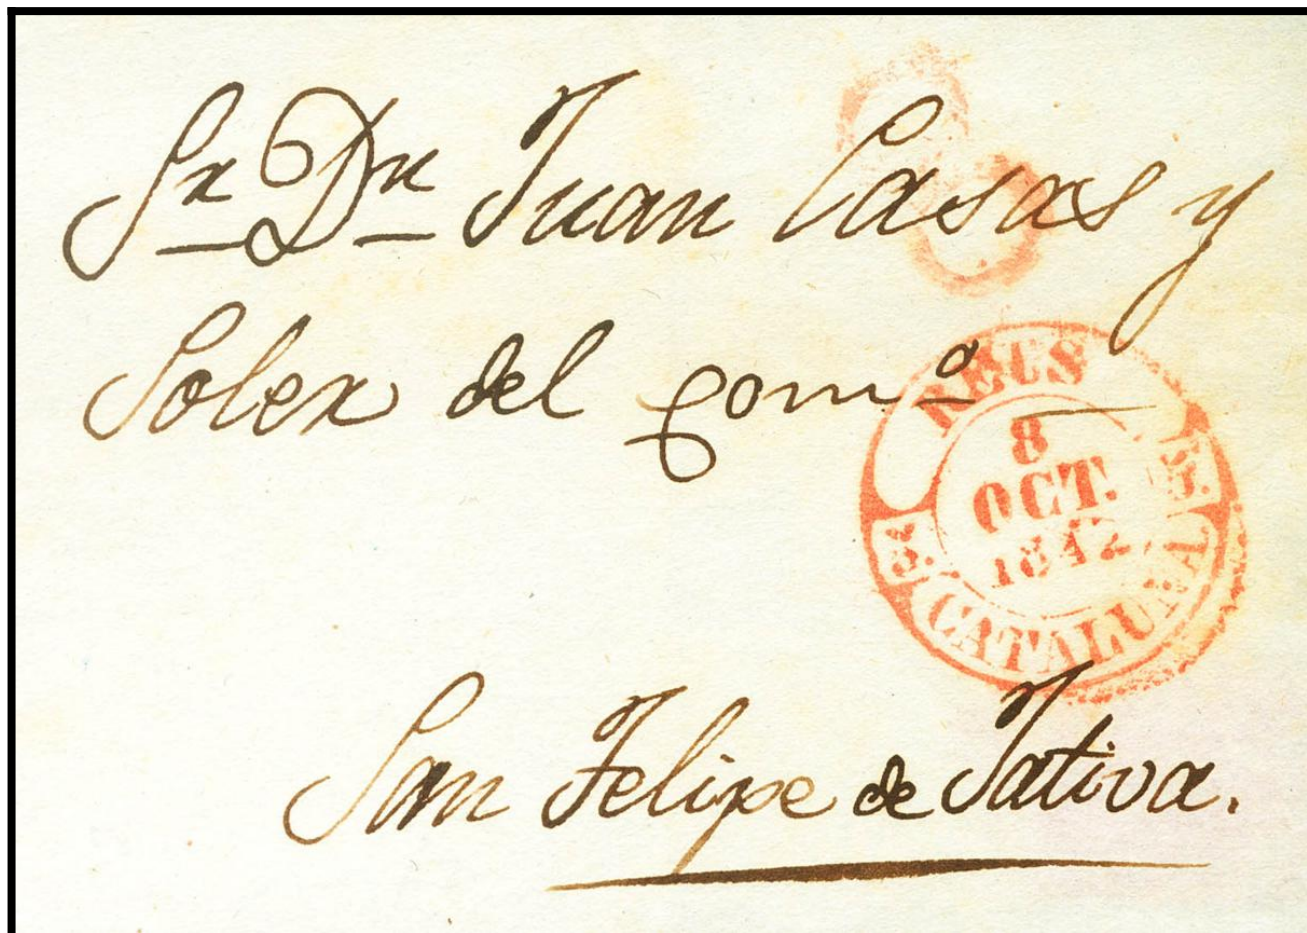 Sr Dn Juan Casas y
Soler del comº
REUS
8
OCT.
1842
CATALUÑA
San Felipe de Jativa.